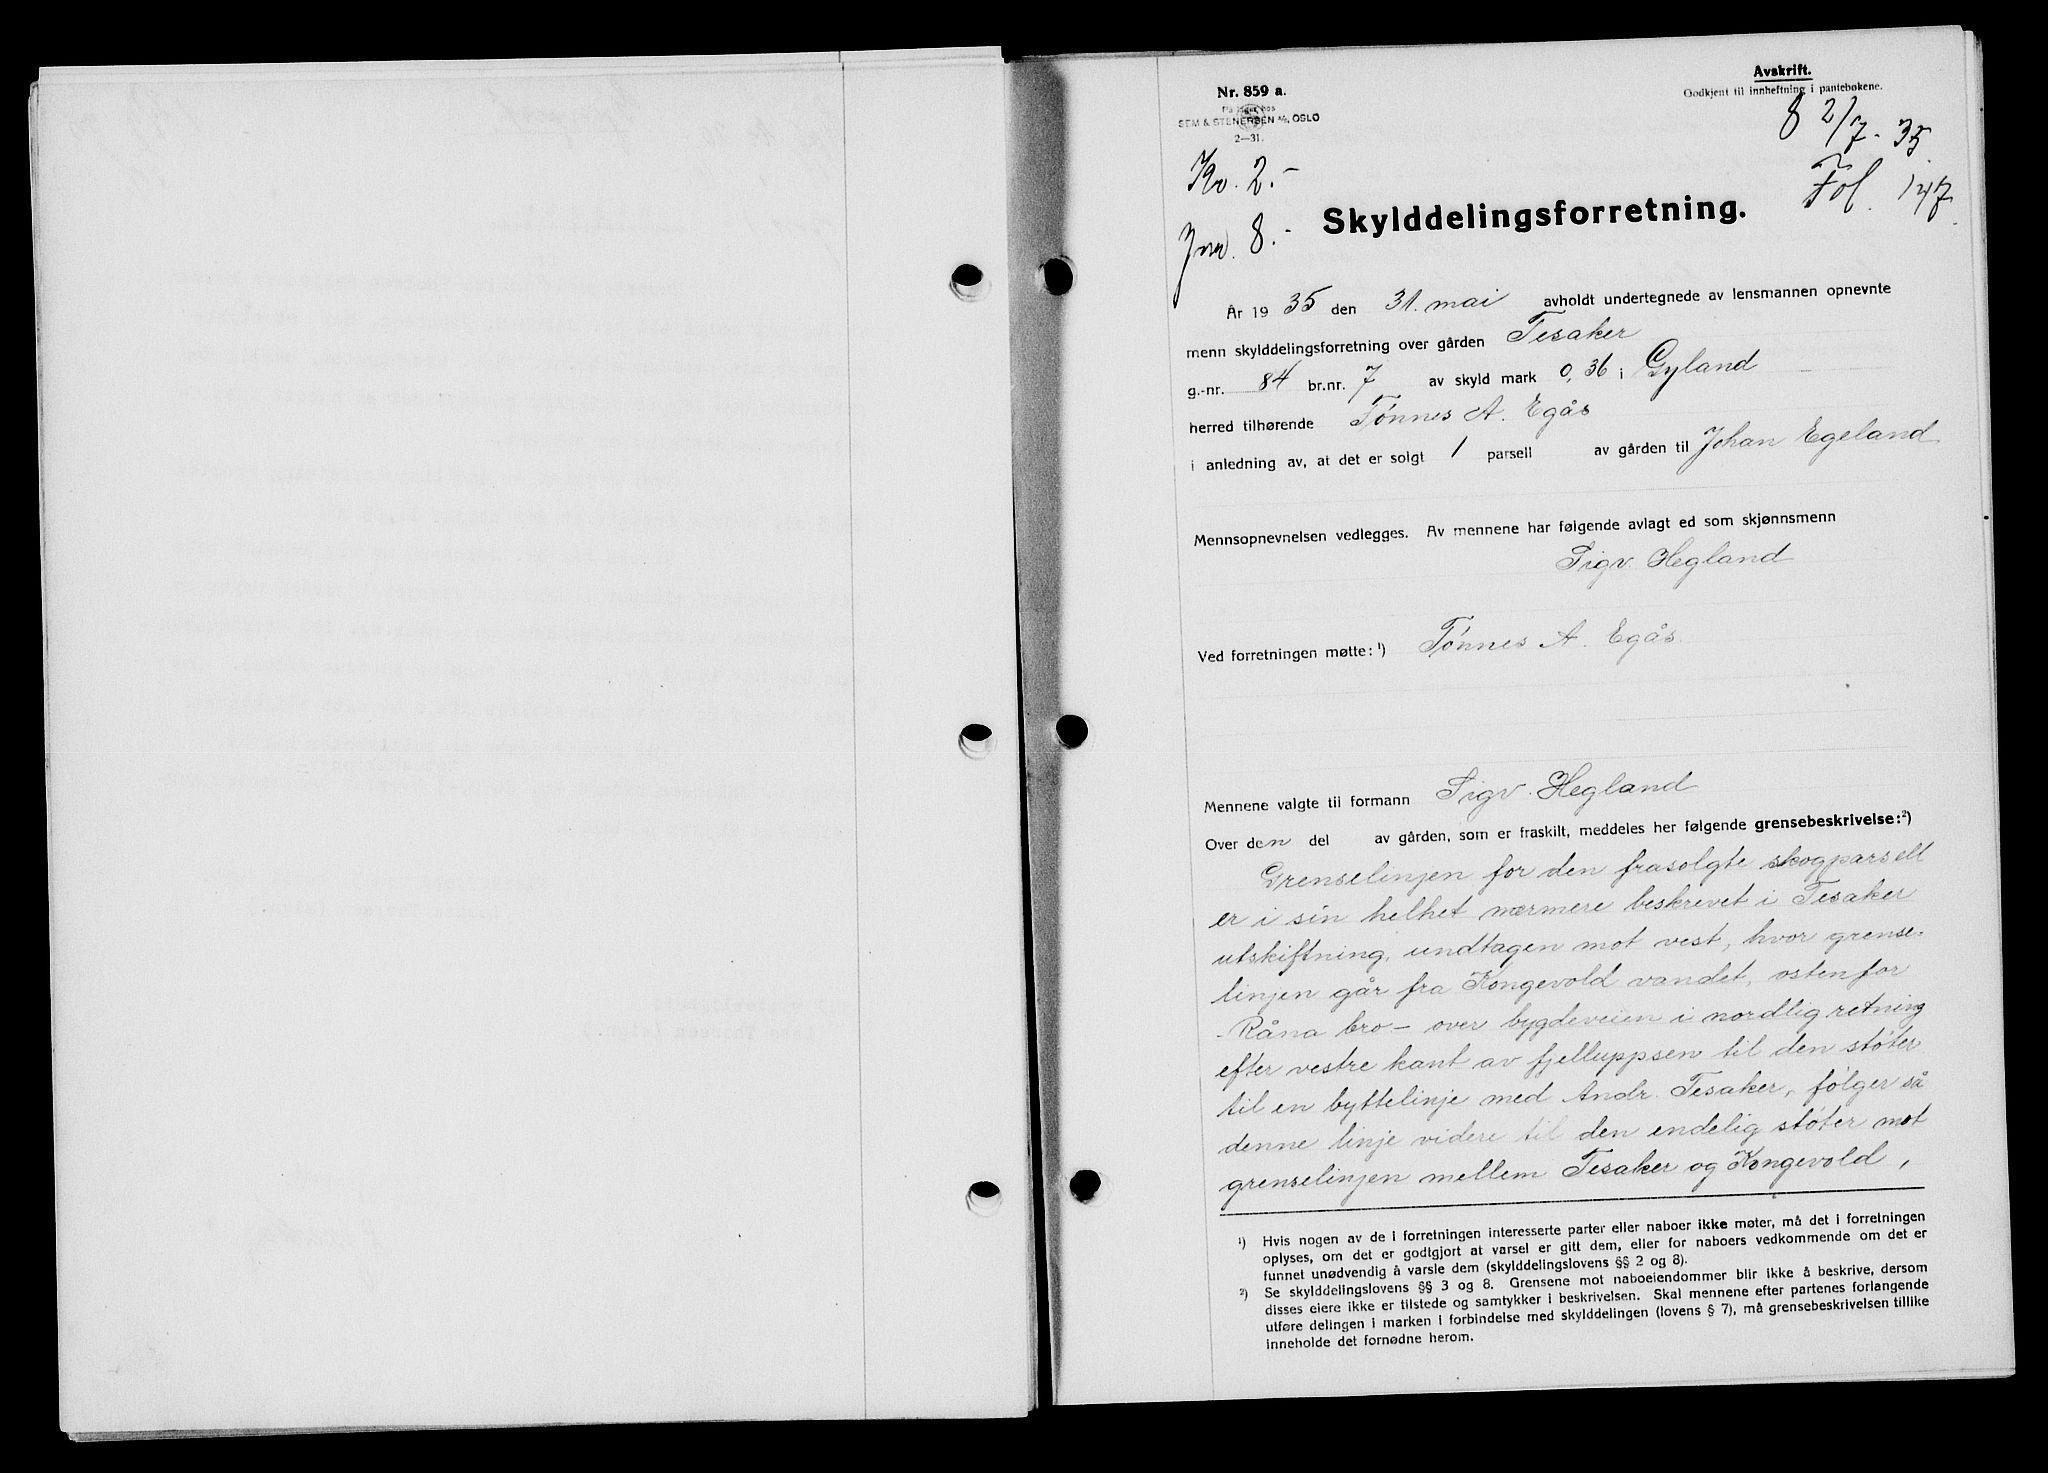 Avskrift.
Nr. 859 a.
Godkjent til innheftning i pantebøkene.
På lager hos
SEM & STENERSEN A/S, OSLO
2—31.
8 2/7 - 35
Kr. 2.-
Fol. 147
Skylddelingsforretning.
Jnr. 8.-
År 1935 den 31. mai avholdt undertegnede av lensmannen opnevnte
menn skylddelingsforretning over gården Tesaker
g.-nr. 84 br.nr. 7 av skyld mark 0,36 i Gyland
herred tilhørende Tønnes A. Egås
i anledning av, at det er solgt 1 parsell av gården til Johan Egeland
Mennsopnevnelsen vedlegges. Av mennene har følgende avlagt ed som skjønnsmenn
Sigv. Hegland
Ved forretningen møtte: ¹) Tønnes A. Egås.
Mennene valgte til formann Sigv. Hegland
Over den del av gården, som er fraskilt, meddeles her følgende grensebeskrivelse: ²)
Grenselinjen for den frasolgte skogparsell
er i sin helhet nærmere beskrevet i Tesaker
utskiftning, undtagen mot vest, hvor grense-
linjen går fra Kongevold vandet, østenfor
Råna bro - over bygdeveien i nordlig retning
efter vestre kant av fjelluppsen til den støter
til en byttelinje med Andr. Tesaker, følger så
denne linje videre til den endelig støter mot
grenselinjen mellem Tesaker og Kongevold,
¹) Hvis nogen av de i forretningen interesserte parter eller naboer ikke møter, må det i forretningen
oplyses, om det er godtgjort at varsel er gitt dem, eller for naboers vedkommende om det er
funnet unødvendig å varsle dem (skylddelingslovens §§ 2 og 8).
²) Se skylddelingslovens §§ 3 og 8. Grensene mot naboeiendommer blir ikke å beskrive, dersom
disses eiere ikke er tilstede og samtykker i beskrivelsen. Skal mennene efter partenes forlangende
utføre delingen i marken i forbindelse med skylddelingen (lovens § 7), må grensebeskrivelsen tillike
inneholde det fornødne herom.